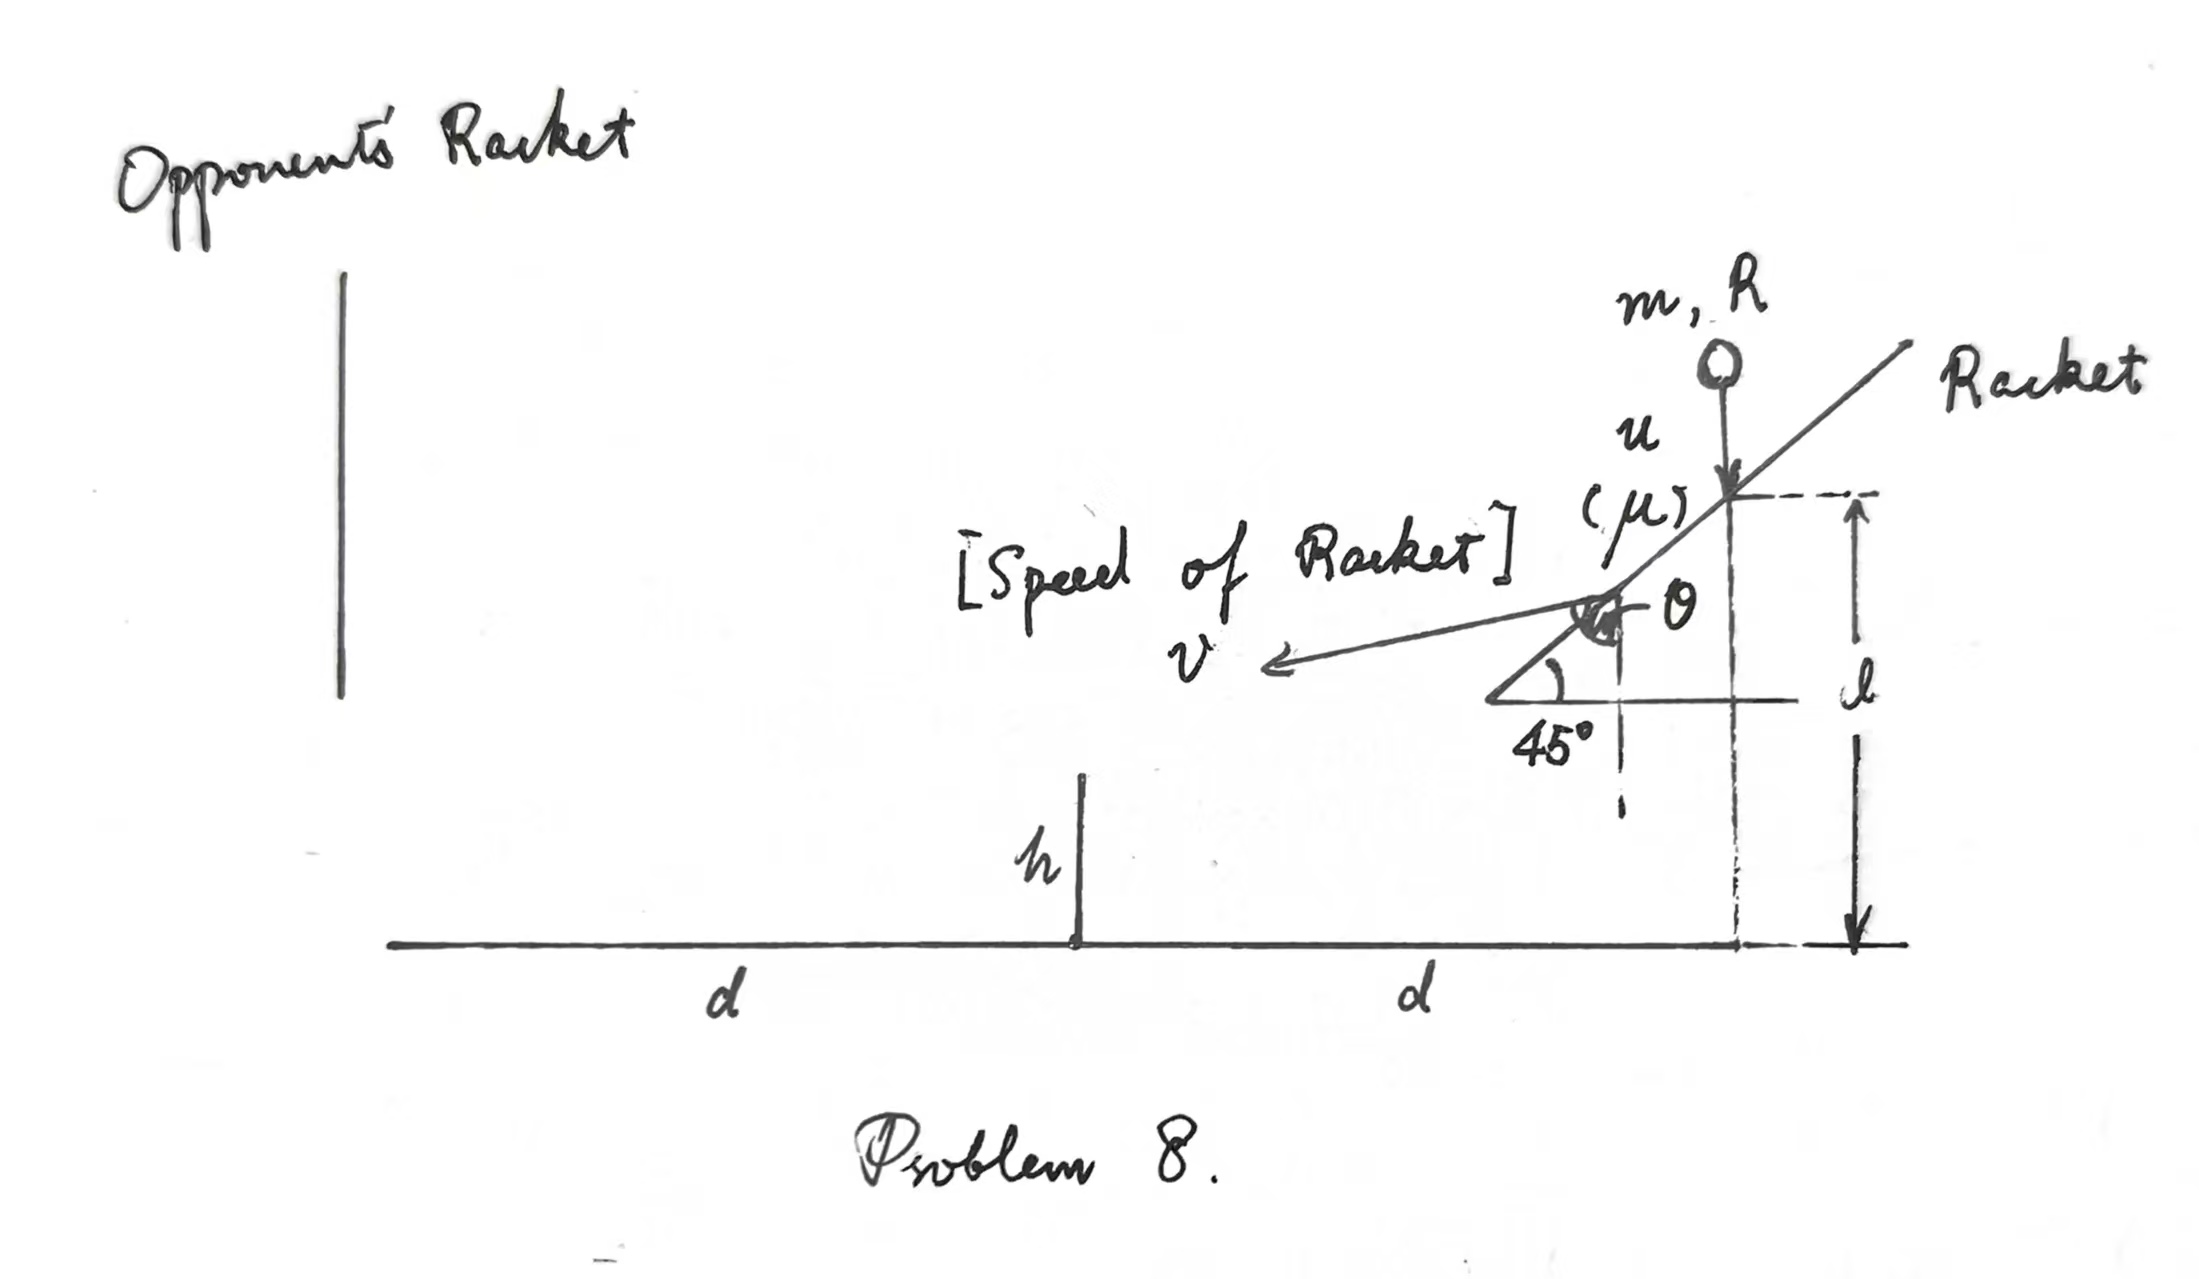 Opponent's Racket
m, R
Racket
u
(μ)
[Speed of Racket]
θ
v
l
45°
h
d
d
Problem 8.